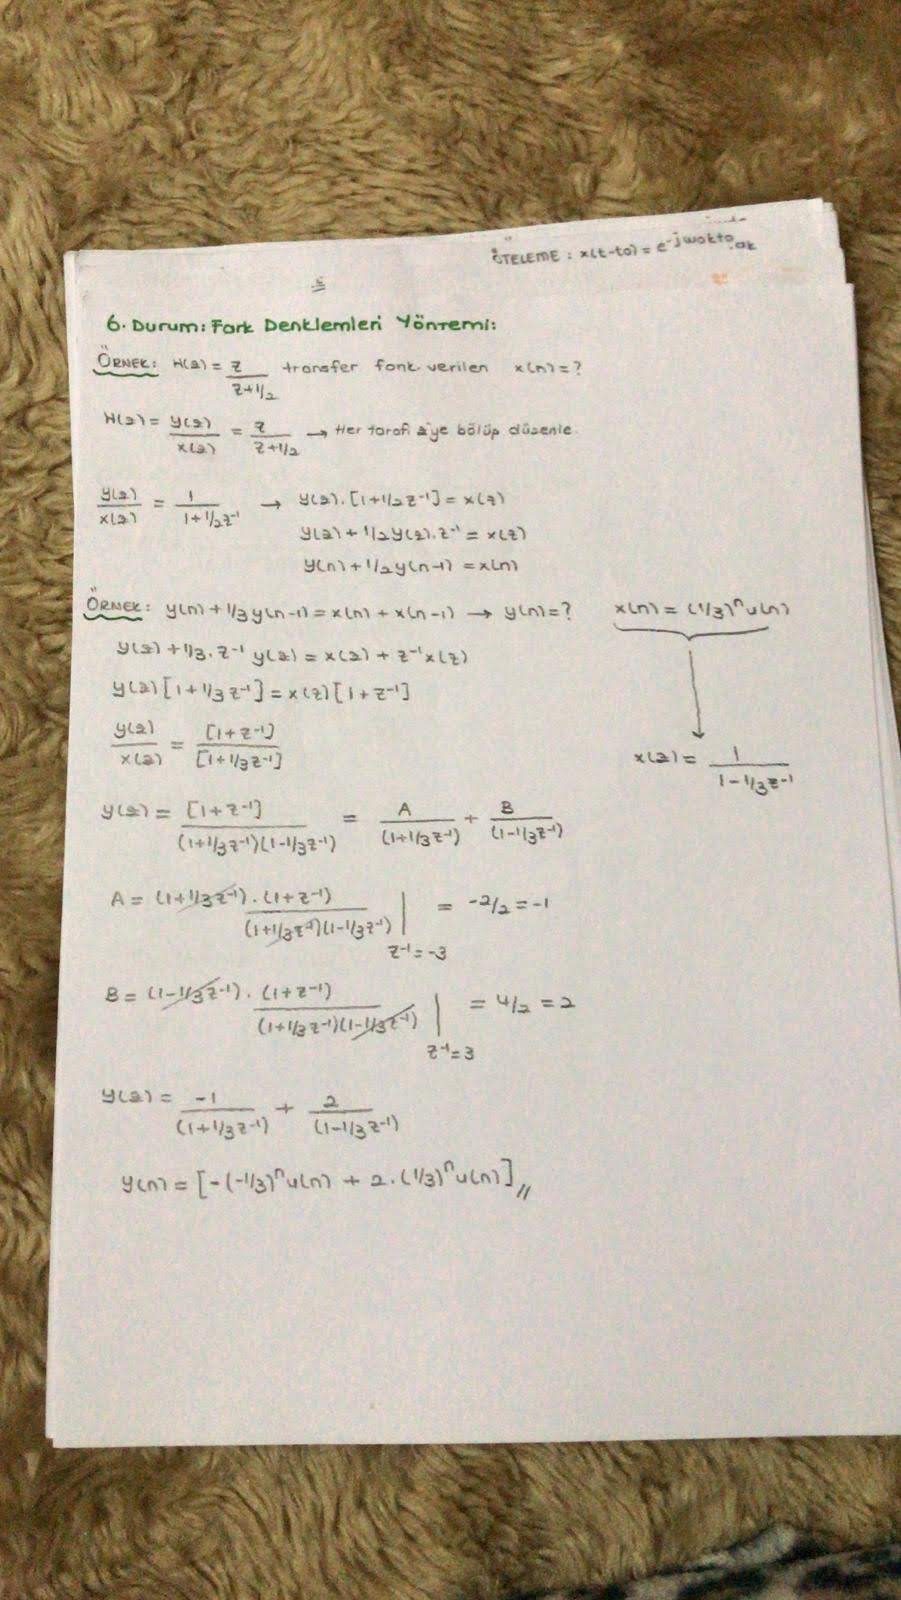 ÖTELEME : x(t-to) = e^-jwokto .ak
6. Durum: Fark Denklemleri Yöntemi:
ÖRNEK: H(z) = z / (z+1/2) transfer fonk. verilen x(n) = ?
H(z) = y(z)/x(z) = z / (z+1/2) → Her tarafı z'ye bölüp düzenle.
y(z)/x(z) = 1 / (1+1/2z^-1) → y(z).[1+1/2z^-1] = x(z)
y(z) + 1/2y(z).z^-1 = x(z)
y(n) + 1/2y(n-1) = x(n)
ÖRNEK: y(n) + 1/3y(n-1) = x(n) + x(n-1) → y(n) = ? x(n) = (1/3)^n u(n)
y(z) + 1/3.z^-1 y(z) = x(z) + z^-1x(z)
y(z)[1+1/3z^-1] = x(z)[1+z^-1]
y(z)/x(z) = [1+z^-1] / [1+1/3z^-1]
x(z) = 1 / (1-1/3z^-1)
y(z) = [1+z^-1] / (1+1/3z^-1)(1-1/3z^-1) = A / (1+1/3z^-1) + B / (1-1/3z^-1)
A = (1+1/3z^-1).(1+z^-1) / (1+1/3z^-1)(1-1/3z^-1) | z^-1=-3 = -2/2 = -1
B = (1-1/3z^-1).(1+z^-1) / (1+1/3z^-1)(1-1/3z^-1) | z^-1=3 = 4/2 = 2
y(z) = -1 / (1+1/3z^-1) + 2 / (1-1/3z^-1)
y(n) = [-(-1/3)^n u(n) + 2.(1/3)^n u(n)] //